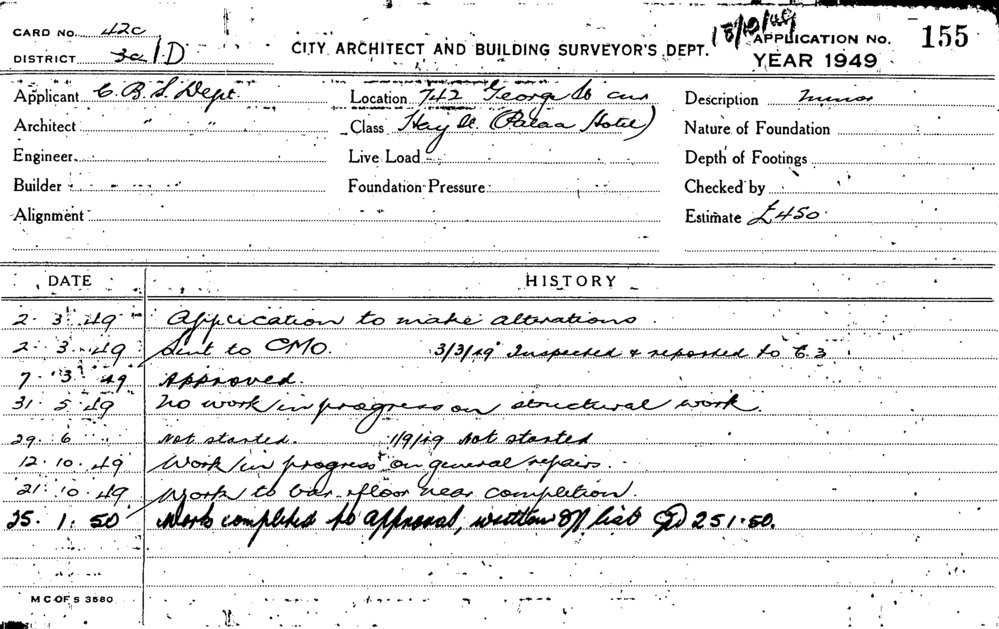 CARD No. 42c
DISTRICT 3a/D
CITY ARCHITECT AND BUILDING SURVEYOR'S DEPT.
APPLICATION No. 155
YEAR 1949
Applicant C.B.S. Dept. Location 742 George St cnr Description minor
Architect " " Class Hay St. (Palace Hotel) Nature of Foundation
Engineer Live Load Depth of Footings
Builder Foundation Pressure Checked by
Alignment Estimate £450
DATE HISTORY
2. 3. 49 Application to make alterations.
2. 3. 49 Sent to CMO. 3/3/49 Inspected & reported to
7 3 49 Approved.
31. 5. 49 No work in progress on structural work.
29. 6 Not started. 1/9/49 Not started
12. 10. 49 Work in progress on general repairs.
21. 10. 49 Work to bar floor near completion.
25. 1. 50 Work completed to approval, written off list 25 1. 50.
M C OF S 3580